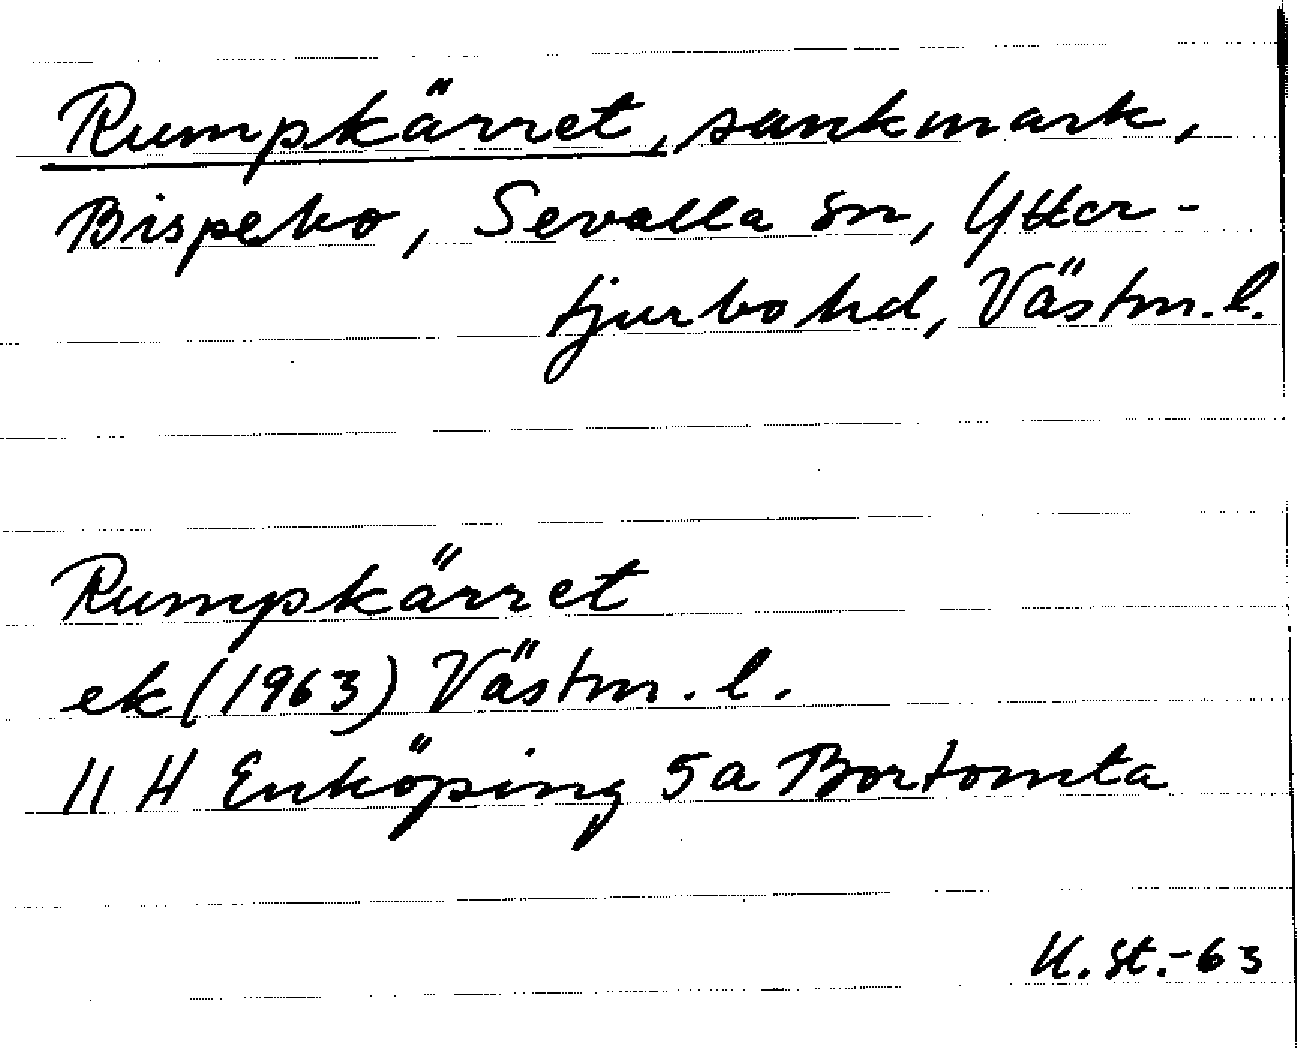 Rumpkärret, sankmark,
Bispebo, Sevalla sn, Ytter-
tjurbo hd, Västm. l.
Rumpkärret
ek (1963) Västm. l.
11 H Enköping 5a Bortomta
K. St.-63